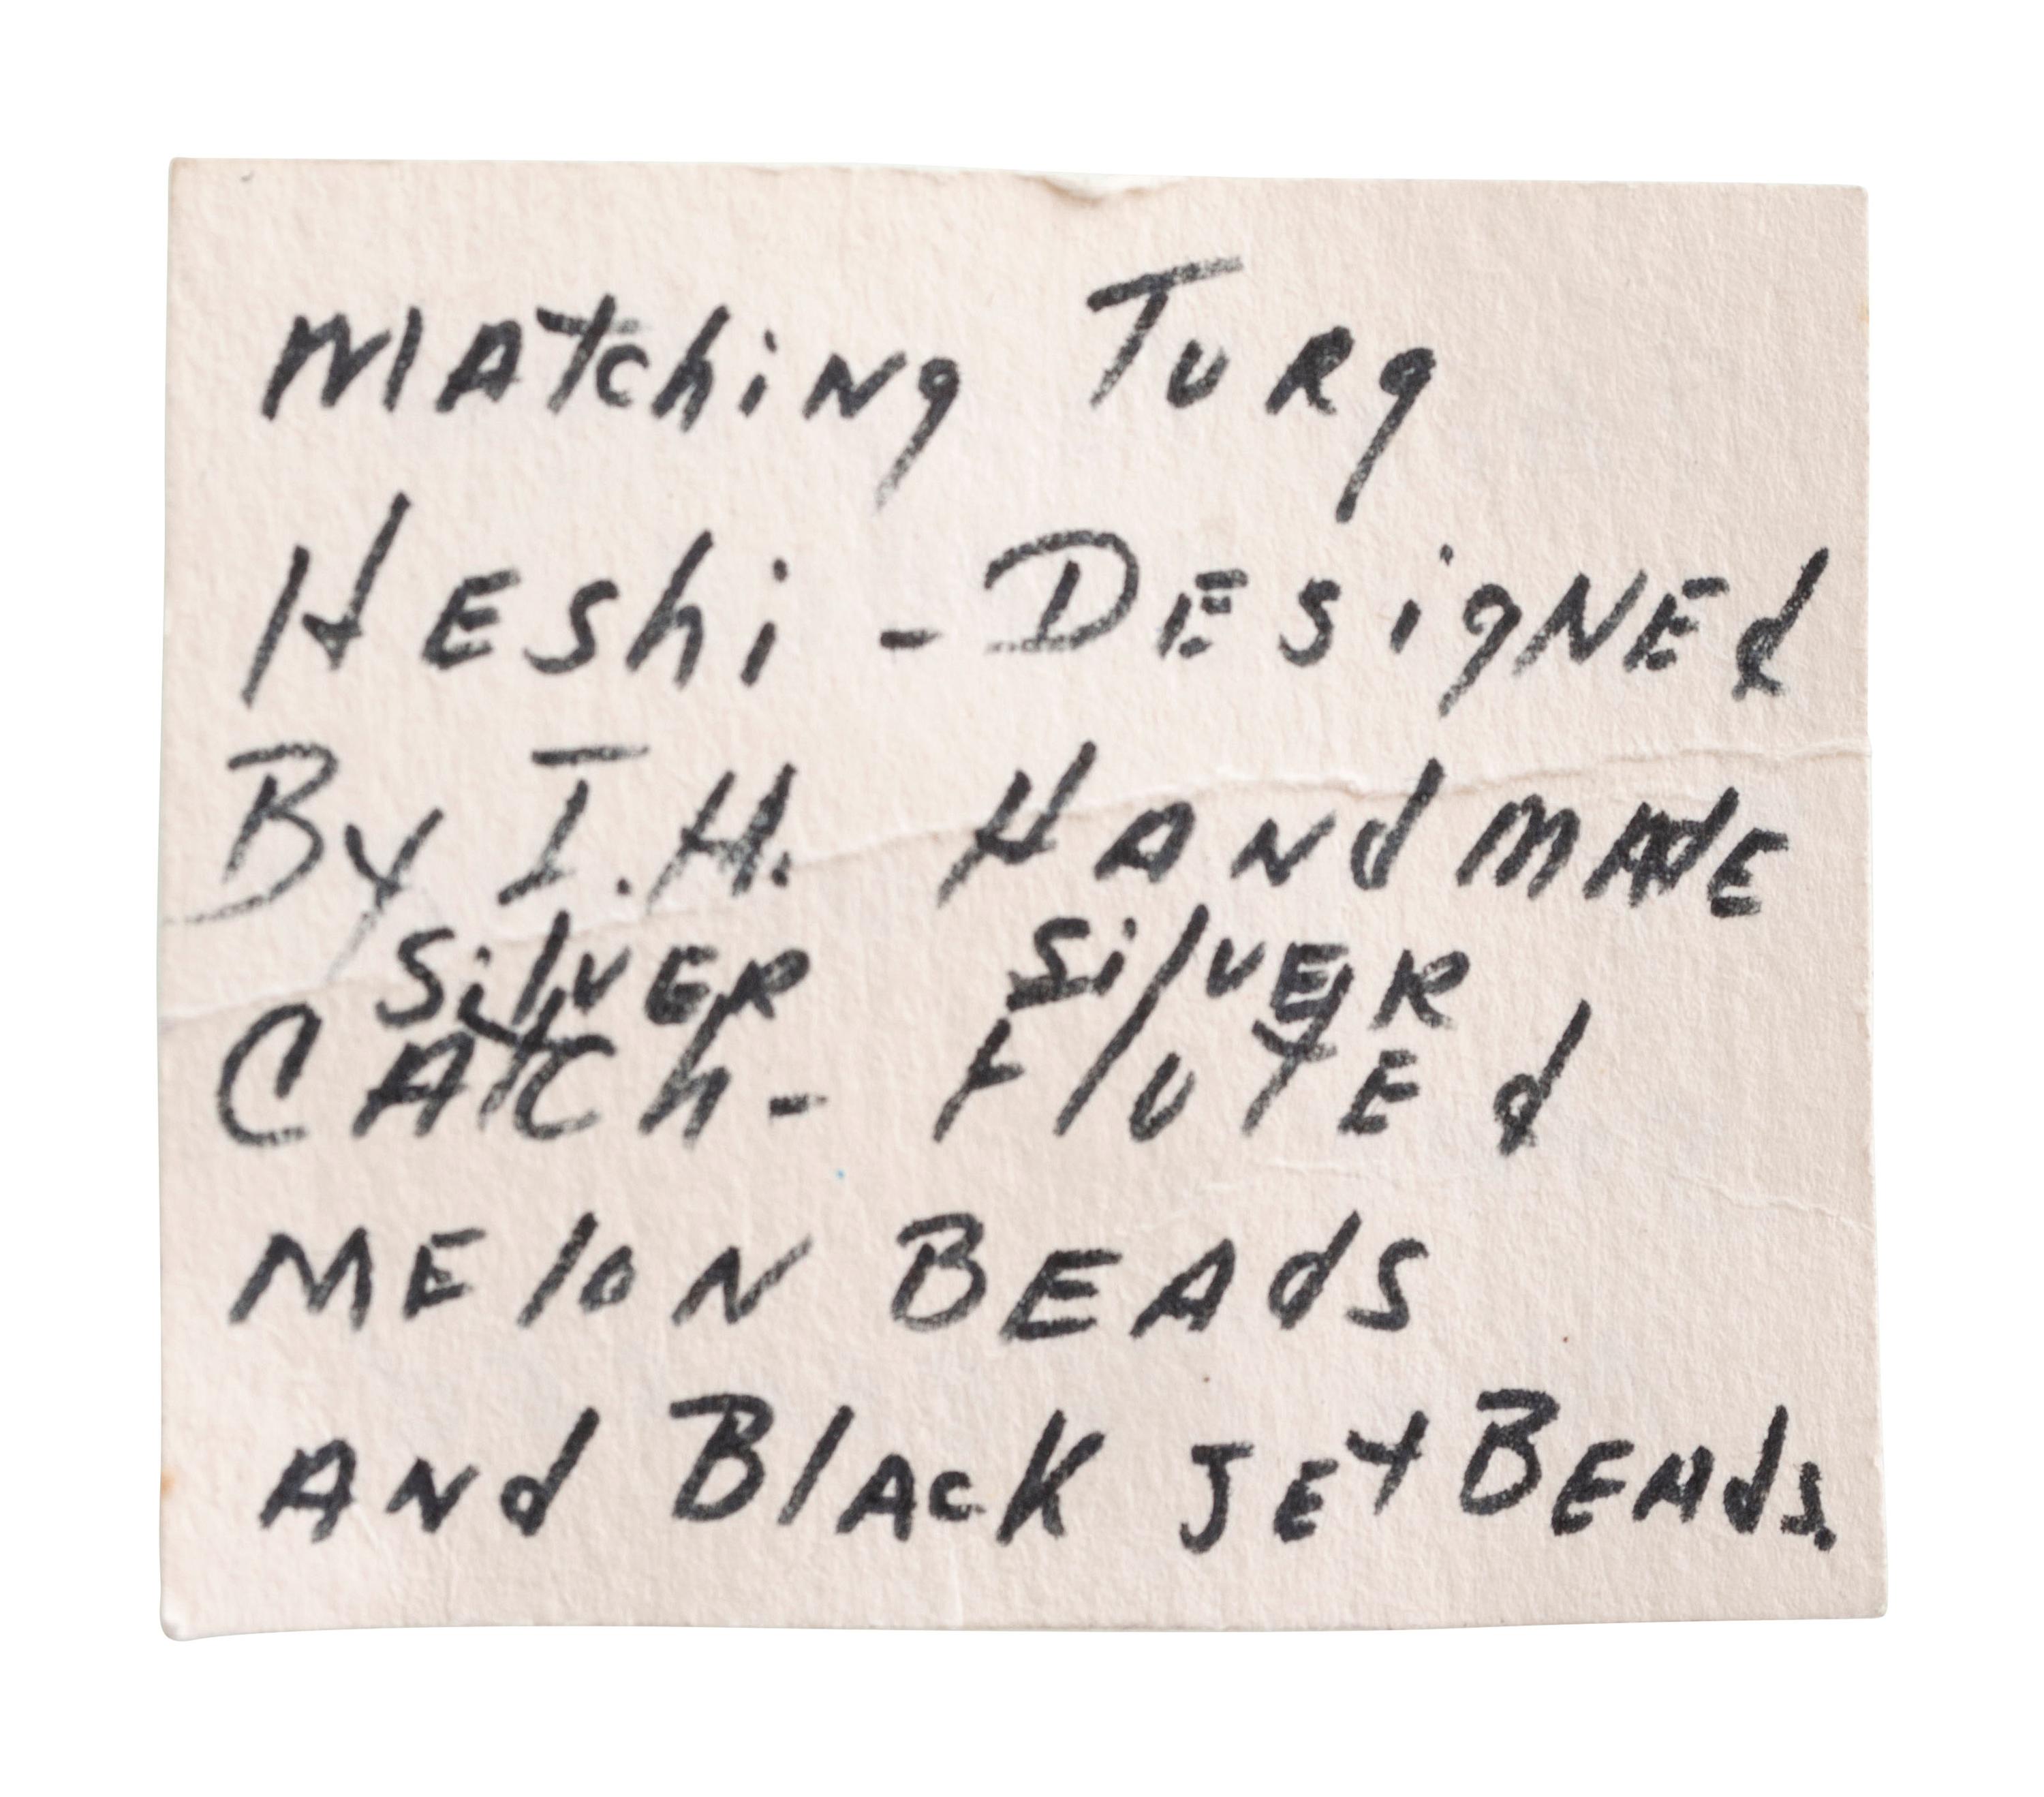 Matching Turq
Heshi - Designed
By I.H. Handmade
Silver Silver
Catch - Fluted
Melon Beads
and Black Jet Beads.